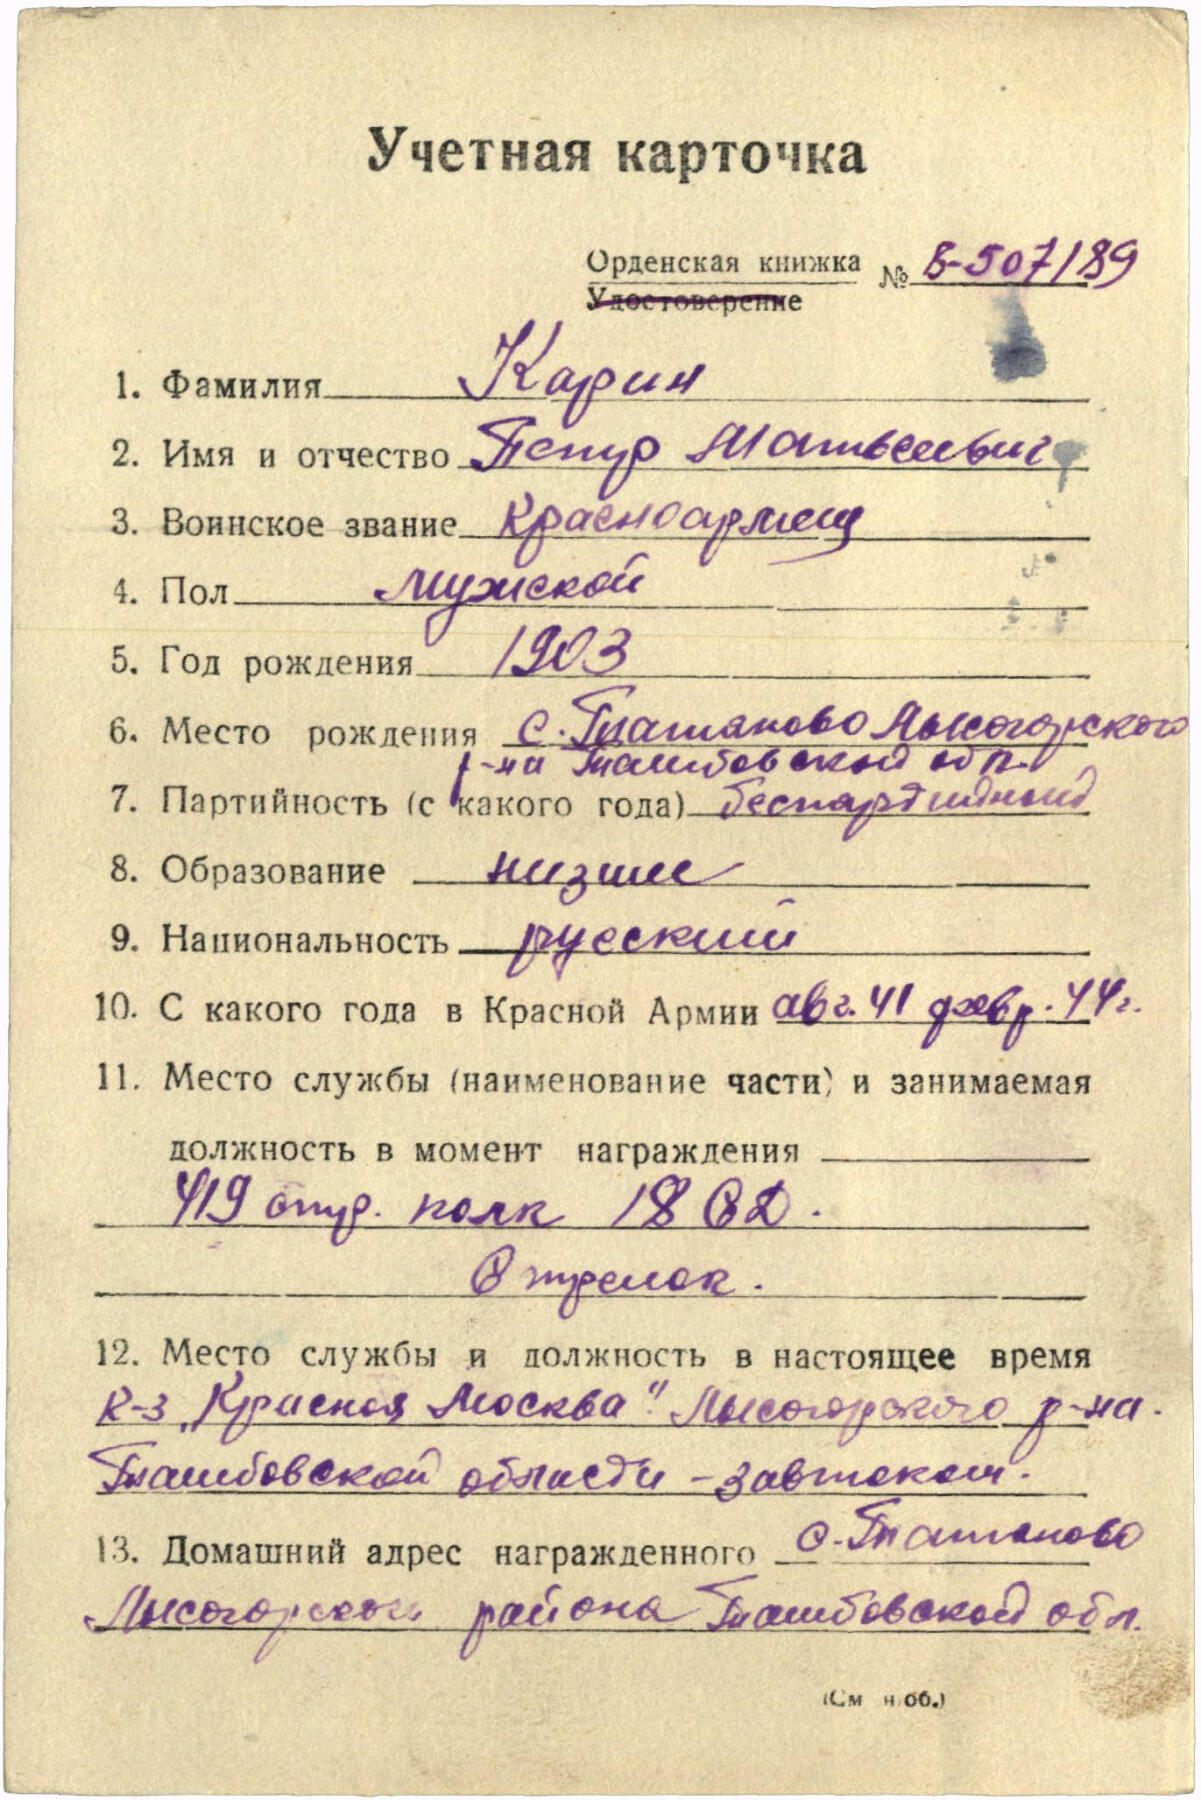 Учетная карточка
Орденская книжка № Б-507189
Удостоверение
1. Фамилия Карин
2. Имя и отчество Петр Матвеевич
3. Воинское звание Красноармеец
4. Пол Мужской
5. Год рождения 1903
6. Место рождения с. Татаново Лысогорского
р-на Тамбовской обл.
7. Партийность (с какого года) беспартийный
8. Образование низшее
9. Национальность русский
10. С какого года в Красной Армии авг. 41 февр. 44 г.
11. Место службы (наименование части) и занимаемая
должность в момент награждения
419 стр. полк 18 СД.
Стрелок.
12. Место службы и должность в настоящее время
к-з "Красная Москва" Лысогорского р-на.
Тамбовской области - завтоком.
13. Домашний адрес награжденного с. Татаново
Лысогорского района Тамбовской обл.
(См н/об.)